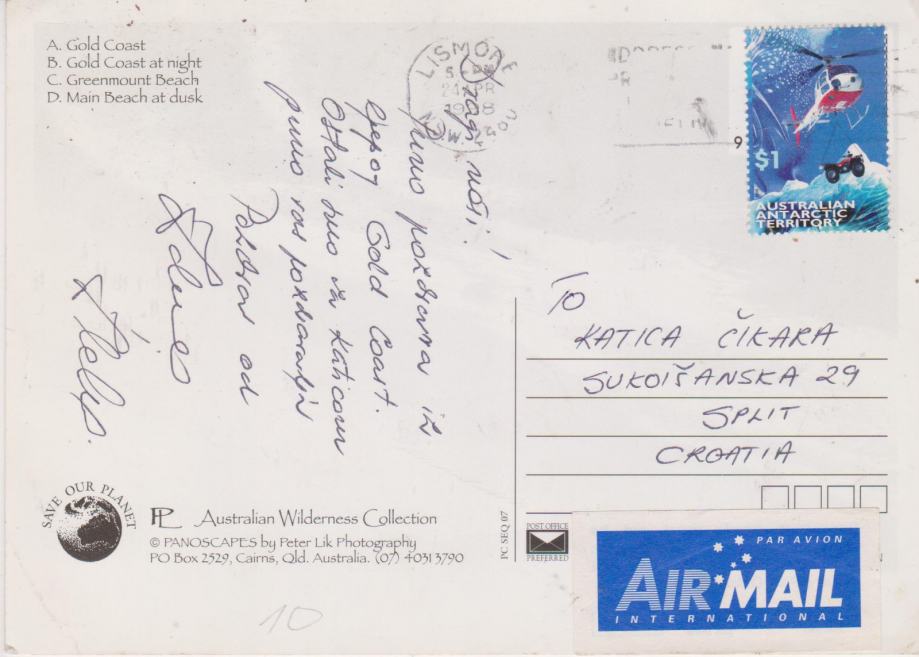 A. Gold Coast
B. Gold Coast at night
C. Greenmount Beach
D. Main Beach at dusk
LISMORE
24 APR
1998
$1
AUSTRALIAN
ANTARCTIC
TERRITORY
9
Dragi moji!
Puno pozdrava iz
lijepog Gold Coast.
Ostali smo sa Katicom
puno vas pozdravlja
Pozdrav od
TO
KATICA ČIKARA
SUKOIŠANSKA 29
SPLIT
CROATIA
SAVE OUR PLANET
PL Australian Wilderness Collection
© PANOSCAPES by Peter Lik Photography
PO Box 2529, Cairns, Qld. Australia. (07) 4031 3790
PC SEQ 07
POST OFFICE
PREFERRED
PAR AVION
AIR MAIL
INTERNATIONAL
10